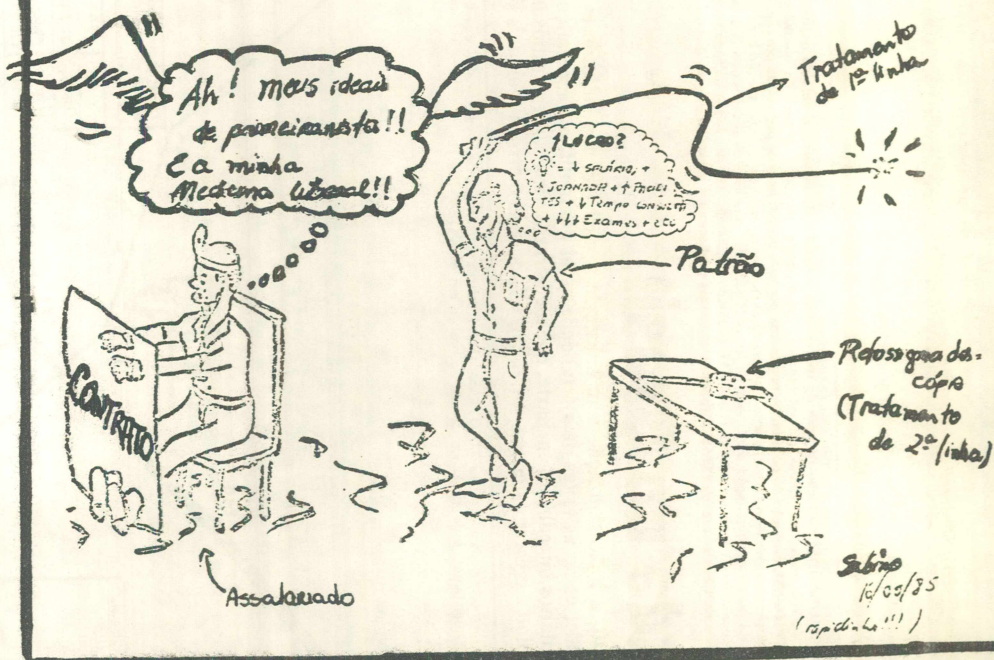 Ah! meus ideais
de primeiranista!!
E a minha
Medicina liberal!!
↑LUCRO?
= ↓ SALÁRIO, +
↑ JORNADA + ↑ PACIEN
TES + ↓ Tempo consulta
+ ↓↓↓ Exames + etc
Tratamento
de 1ª linha
Patrão
CONTRATO
(Tratamento
de 2ª linha)
Assalariado
Sabino
/85
(rapidinho!!!)